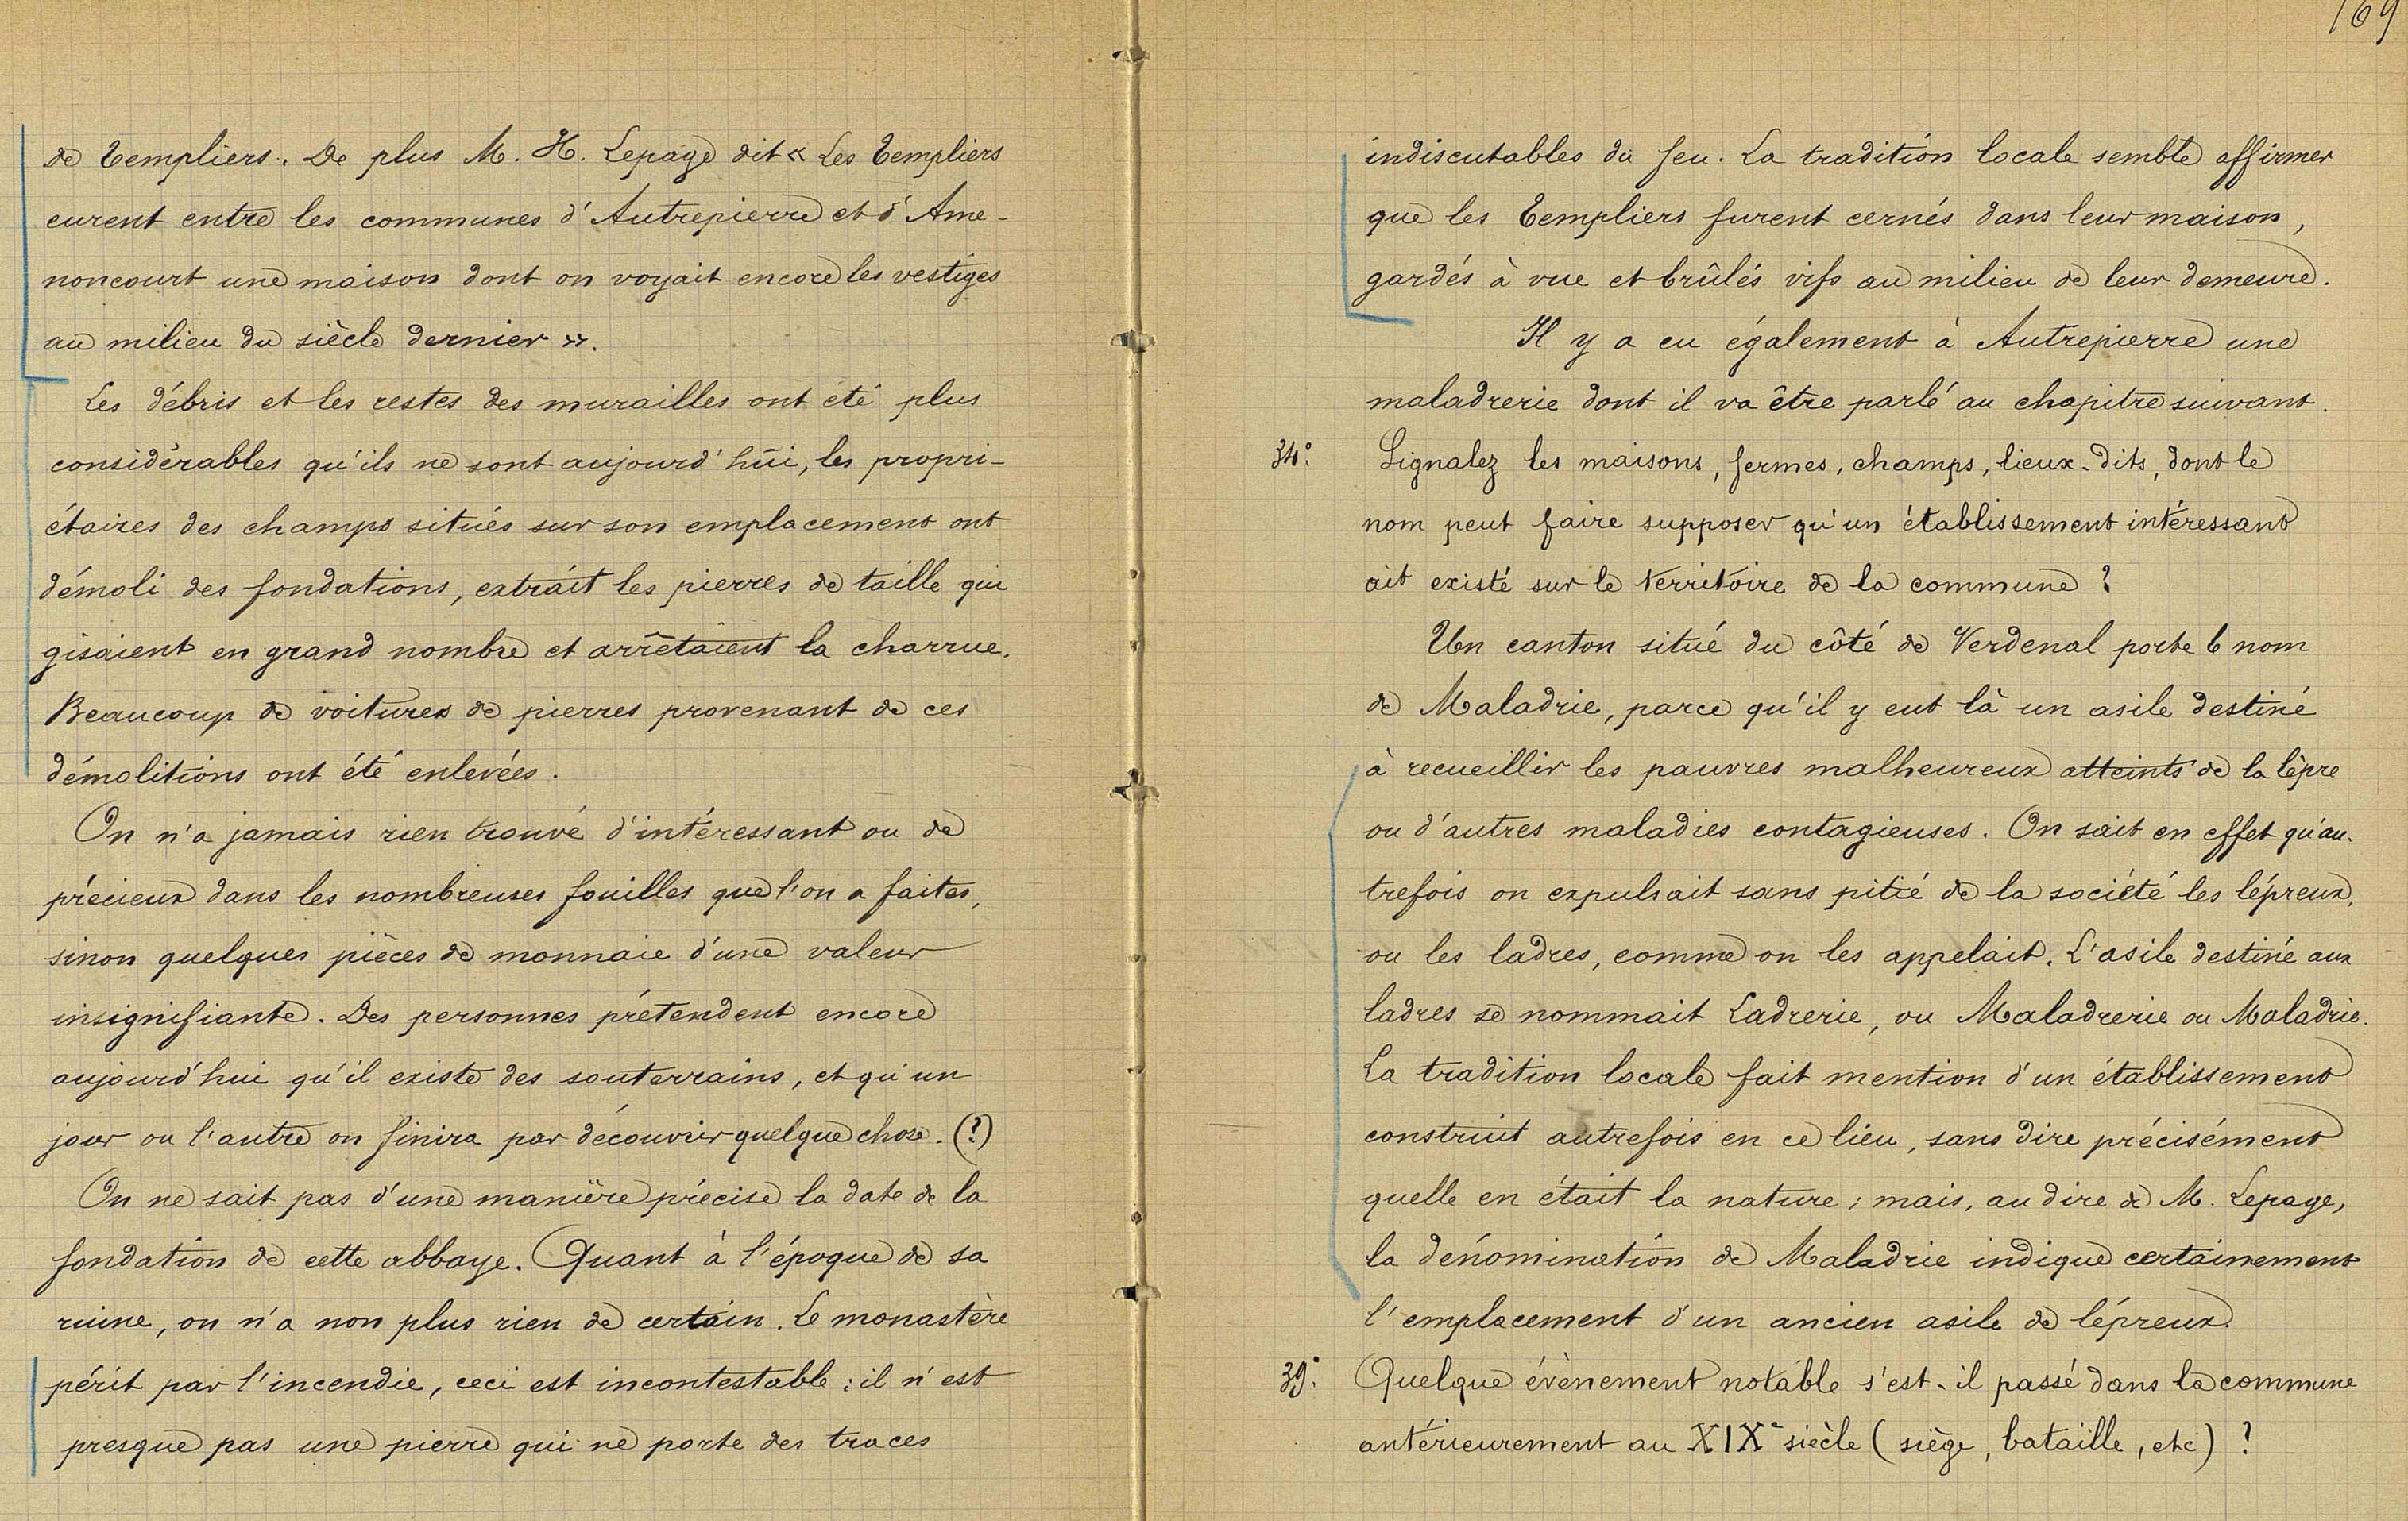 de Templiers. De plus M. H. Lepage dit « Les Templiers
eurent entre les communes d'Autrepierre et d'Ame-
noncourt une maison dont on voyait encore les vestiges
au milieu du siècle dernier ».
Les débris et les restes des murailles ont été plus
considérables qu'ils ne sont aujourd'hui, les propri-
étaires des champs situés sur son emplacement ont
démoli des fondations, extrait les pierres de taille qui
gisaient en grand nombre et arrêtaient la charrue.
Beaucoup de voitures de pierres provenant de ces
démolitions ont été enlevées.
On n'a jamais rien trouvé d'intéressant ou de
précieux dans les nombreuses fouilles que l'on a faites,
sinon quelques pièces de monnaie d'une valeur
insignifiante. Des personnes prétendent encore
aujourd'hui qu'il existe des souterrains, et qu'un
jour ou l'autre on finira par découvrir quelque chose. (?)
On ne sait pas d'une manière précise la date de la
fondation de cette abbaye. Quant à l'époque de sa
ruine, on n'a non plus rien de certain. Le monastère
périt par l'incendie, ceci est incontestable : il n'est
presque pas une pierre qui ne porte des traces
169
indiscutables du feu. La tradition locale semble affirmer
que les Templiers furent cernés dans leur maison,
gardés à vue et brûlés vifs au milieu de leur demeure.
Il y a eu également à Autrepierre une
maladrerie dont il va être parlé au chapitre suivant.
34°. Signalez les maisons, fermes, champs, lieux-dits, dont le
nom peut faire supposer qu'un établissement intéressant
ait existé sur le territoire de la commune ?
Un canton situé du côté de Verdenal porte le nom
de Maladrie, parce qu'il y eut là un asile destiné
à recueillir les pauvres malheureux atteints de la lèpre
ou d'autres maladies contagieuses. On sait en effet qu'au-
trefois on expulsait sans pitié de la société les lépreux,
ou les ladres, comme on les appelait. L'asile destiné aux
ladres se nommait Ladrerie, ou Maladrerie ou Maladrie.
La tradition locale fait mention d'un établissement
construit autrefois en ce lieu, sans dire précisément
quelle en était la nature ; mais, au dire de M. Lepage,
la dénomination de Maladrie indique certainement
l'emplacement d'un ancien asile de lépreux.
39°. Quelque évènement notable s'est-il passé dans la commune
antérieurement au XIXe siècle (siège, bataille, etc) ?